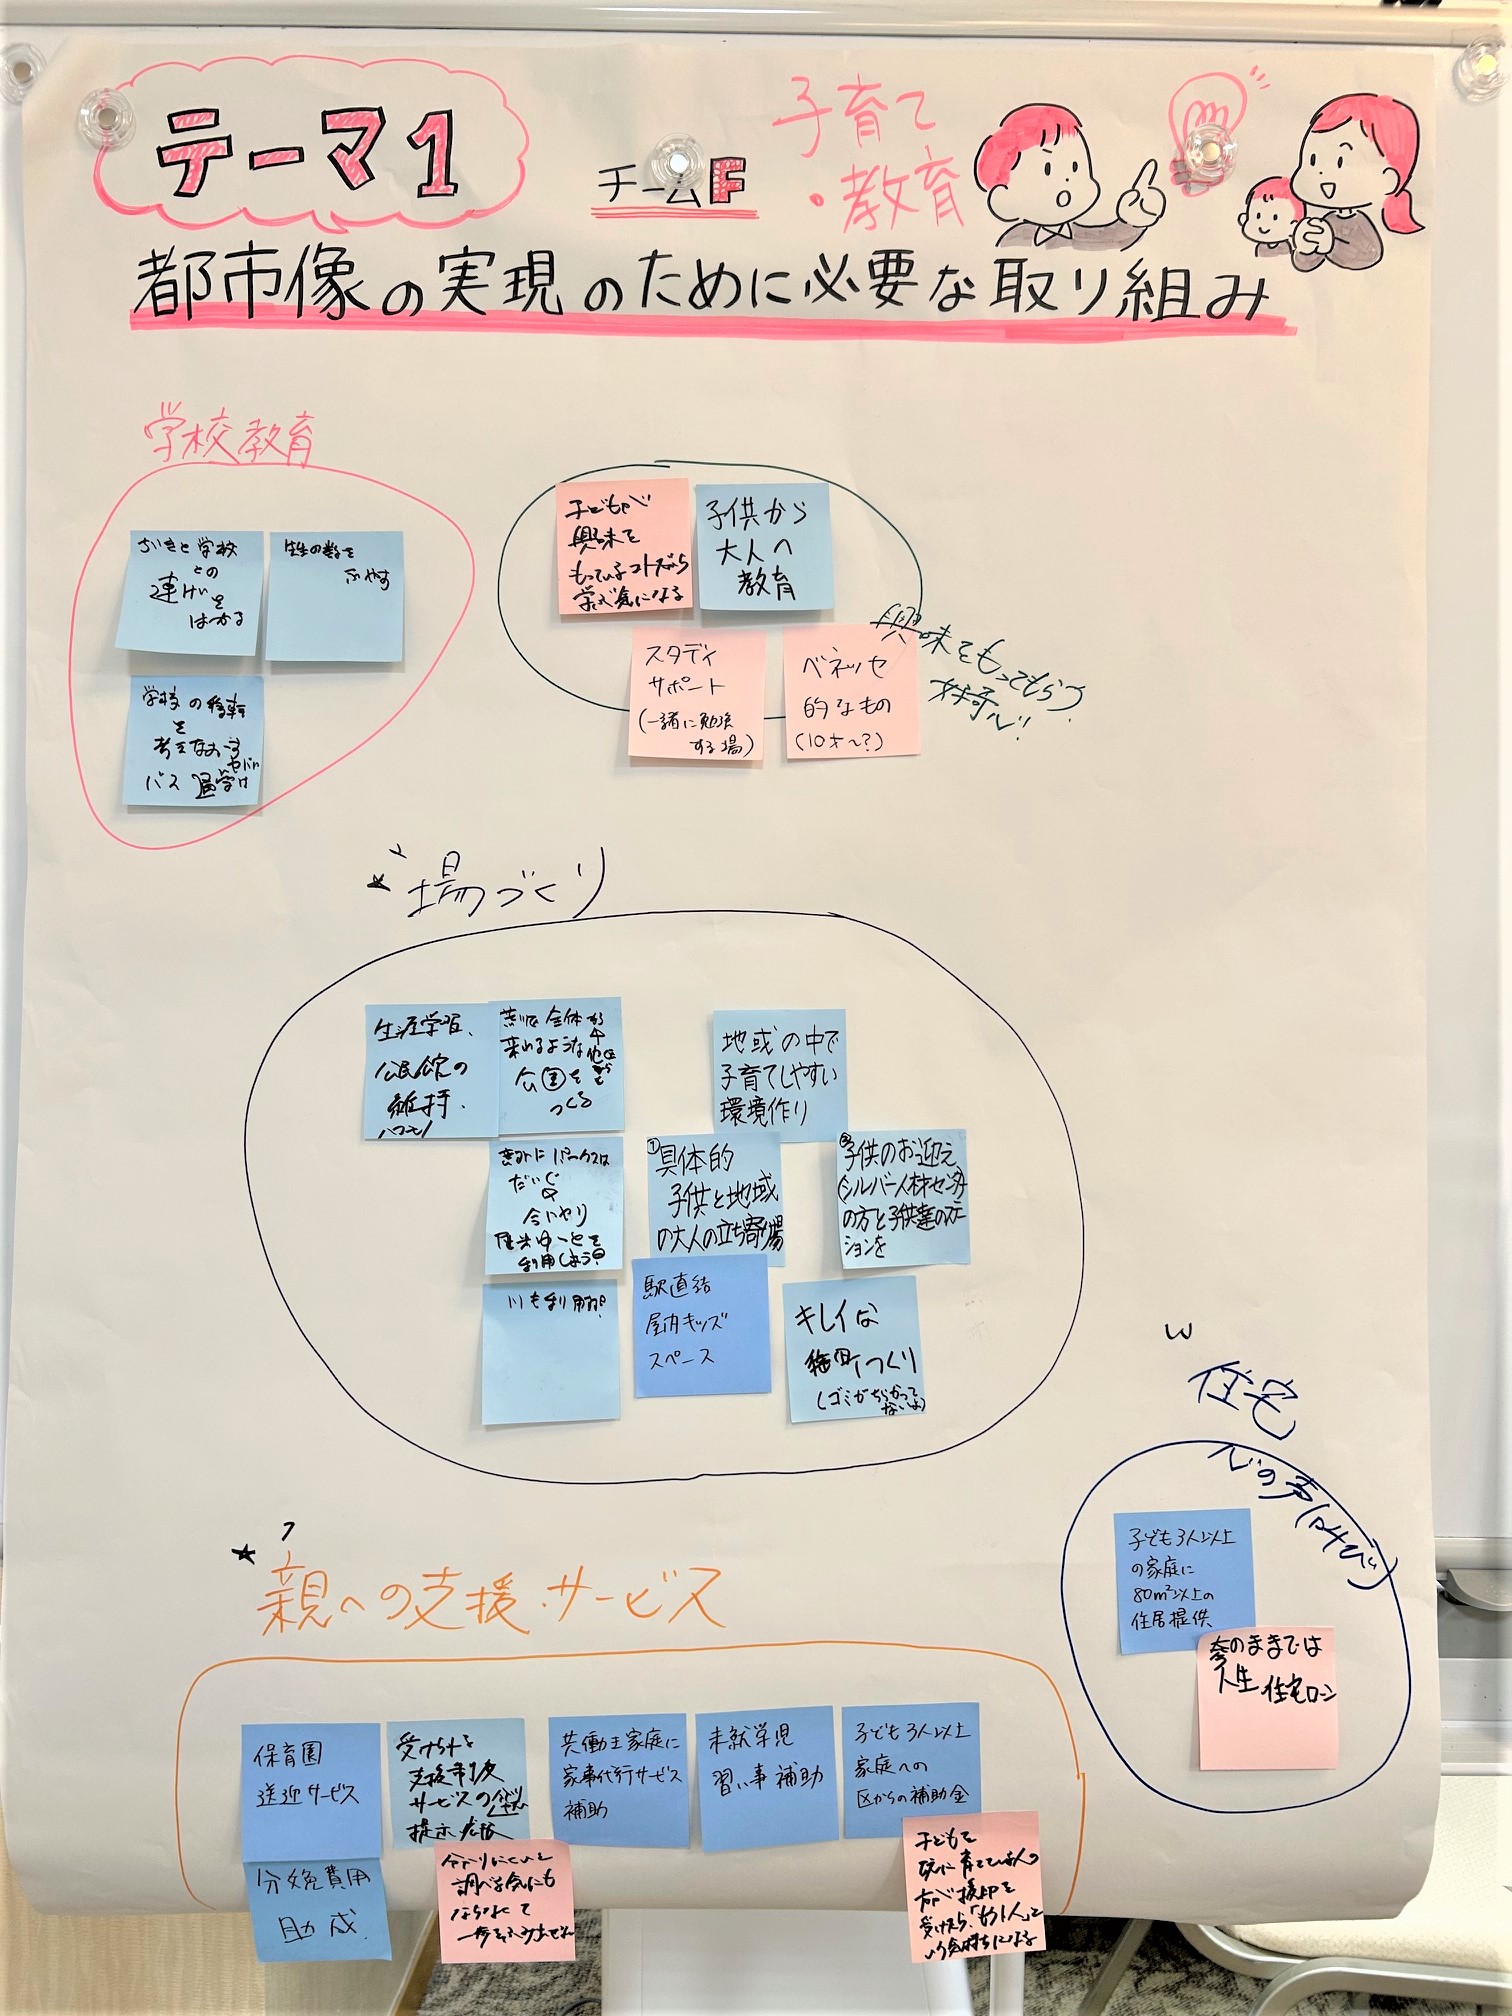 テーマ1
チームF
子育て
・教育
都市像の実現のために必要な取り組み
学校教育
学校
との
連けいを
はかる
先生の数を
ふやす
学校の移転
を
考えなおす
バス通学は
子どもが
興味を
もっているコトだから
学ぶ気になる
子供から
大人へ
教育
スタディ
サポート
(一緒に勉強
する場)
ベネッセ
的なもの
(10才〜?)
興味をもってもらう
場づくり
生涯学習、
公民館の
維持、
全体から
来れるような
公園を
つくる
地域の中で
子育てしやすい
環境作り
今にやり
利用しよう!
①具体的
子供と地域
の大人の立ち寄り場
②子供のお迎え
(シルバー人材センター)
の方と子供達の
ションを
川も利用!
駅直結
屋内キッズ
スペース
キレイな
街づくり
(ゴミがちらかって
ないよ)
住宅
心の声(叫び)
子ども3人以上
の家庭に
80m²以上の
住居提供
今のままでは
人生 住宅ローン
親への支援・サービス
保育園
送迎サービス
受けられる
支援制度
サービスの
提示・広報
共働き家庭に
家事代行サービス
補助
未就学児
習い事補助
子ども3人以上
家庭への
区からの補助金
分娩費用
助成
分かりにくいと
調べる気にも
ならなくて
一歩をふみ出せない
子どもを
既に育てている人の
方が援助を
受けたら「もう1人」と
いう気持ちになる